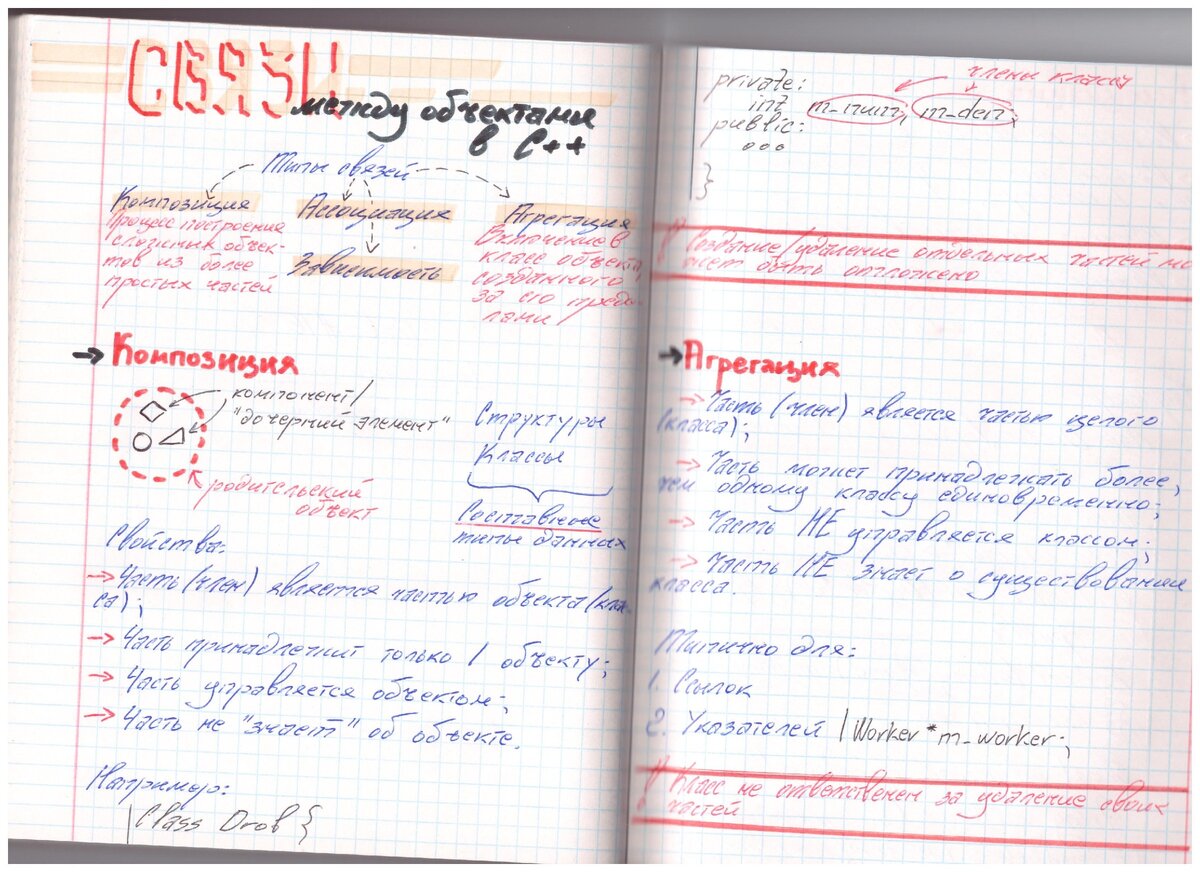 СВЯЗИ
между объектами
в C++
Типы связей
Композиция
Процесс построения
сложных объек-
тов из более
простых частей
Ассоциация
Зависимость
Агрегация
Включение в
класс объекта,
созданного
за его преде-
лами
→ Композиция
компонент/
"дочерний элемент"
родительский
объект
Структуры
Классы
Составные
типы данных
Свойства:
→ Часть (член) является частью объекта (клас-
са);
→ Часть принадлежит только 1 объекту;
→ Часть управляется объектом;
→ Часть не "знает" об объекте.
Например:
Class Drob {
private:
члены класса
int m_num, m_den;
public:
ооо
}
! Создание/удаление отдельных частей мо
жет быть отложено
→ Агрегация
→ Часть (член) является частью целого
(класса);
→ Часть может принадлежать более,
чем одному классу единовременно;
→ Часть НЕ управляется классом;
→ Часть НЕ знает о существовании
класса.
Типично для:
1. Ссылок
2. Указателей | Worker *m_worker;
! Класс не ответственен за удаление своих
частей